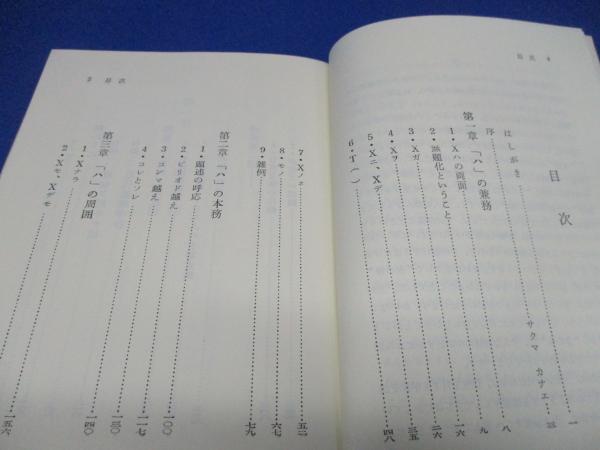 目次
目次
はしがき……サクマ カナエ……一
序……三
第一章 「ハ」の兼務
1・Xハの両面……八
2・無題化ということ……九
3・Xガ……一六
4・Xヲ……二六
5・Xニ、Xデ……三五
6・T( )……四八
目次
7・Xノ……五二
8・モノ……六七
9・雑例……七九
第二章 「ハ」の本務
1・題述の呼応……一〇〇
2・ピリオド越え……一一七
3・コンマ越え……一三〇
4・コレとソレ……一四〇
第三章 「ハ」の周囲
1・Xナラ……一五六
2・Xモ、Xデモ